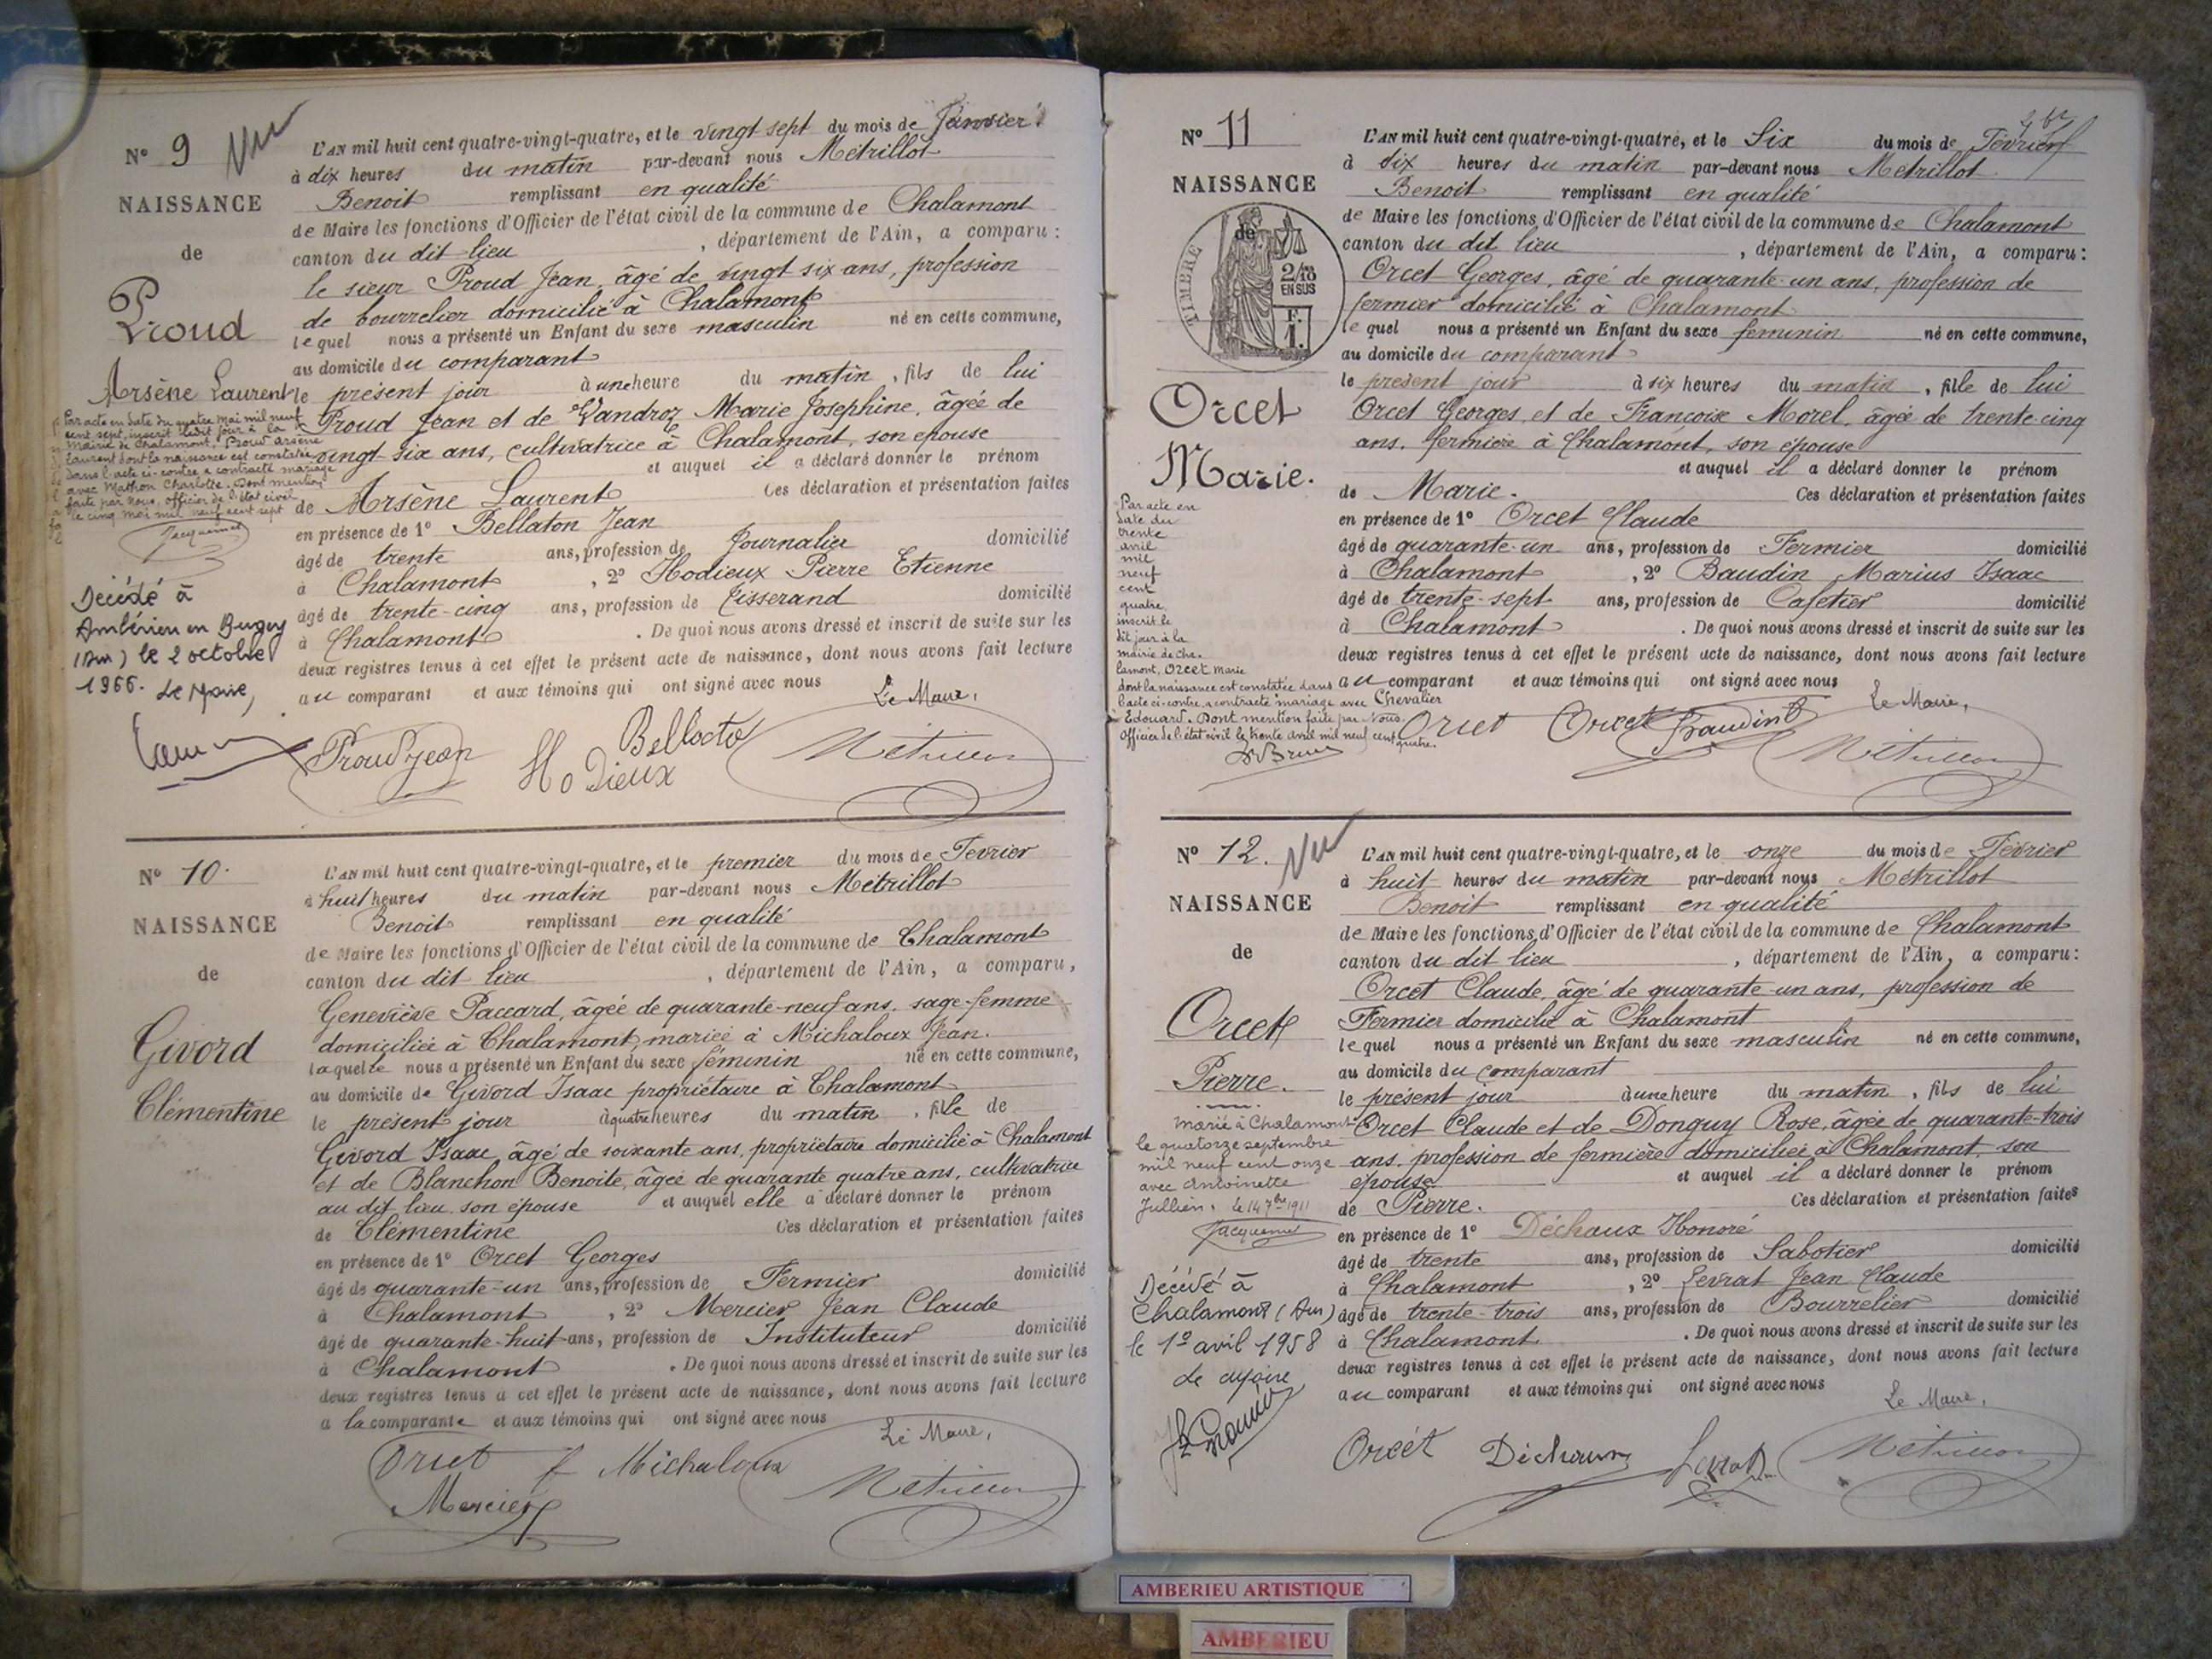 N° 9
Vu
NAISSANCE
de
Proud
Arsène Laurent
Par acte en date du quatre Mai mil neuf
cent sept, inscrit ledit jour à la
mairie de Chalamont, Proud Arsène
Laurent dont la naissance est constatée
dans l'acte ci-contre a contracté mariage
avec Mathon Charlotte. Dont mention
faite par Nous, officier de l'état civil
le cinq mai mil neuf cent sept
Jacquemet
Décédé à
Ambérieu en Bugey
(Ain) le 2 octobre
1966. Le Maire,
L'AN mil huit cent quatre-vingt-quatre, et le vingt sept du mois de Janvier
à dix heures du matin par-devant nous Métrillot
Benoit remplissant en qualité
de Maire les fonctions d'Officier de l'état civil de la commune de Chalamont
canton du dit lieu , département de l'Ain, a comparu :
le sieur Proud Jean, âgé de vingt six ans, profession
de bourrelier domicilié à Chalamont
lequel nous a présenté un Enfant du sexe masculin né en cette commune,
au domicile du comparant
le présent jour à une heure du matin , fils de lui
Proud Jean et de Vandroz Marie Josephine, âgée de
vingt six ans, cultivatrice à Chalamont, son épouse
et auquel il a déclaré donner le prénom
de Arsène Laurent Ces déclaration et présentation faites
en présence de 1° Bellaton Jean
âgé de trente ans, profession de Journalier domicilié
à Chalamont , 2° Hodieux Pierre Etienne
âgé de trente-cinq ans, profession de Tisserand domicilié
à Chalamont . De quoi nous avons dressé et inscrit de suite sur les
deux registres tenus à cet effet le présent acte de naissance, dont nous avons fait lecture
au comparant et aux témoins qui ont signé avec nous
Le Maire,
Proud Jean Hodieux Bellaton Métrillot
N° 10.
NAISSANCE
de
Givord
Clémentine
L'AN mil huit cent quatre-vingt-quatre, et le premier du mois de Février
à huit heures du matin par-devant nous Métrillot
Benoit remplissant en qualité
de Maire les fonctions d'Officier de l'état civil de la commune de Chalamont
canton du dit lieu , département de l'Ain, a comparu,
Geneviève Paccard, âgée de quarante-neuf ans, sage-femme
domiciliée à Chalamont, mariée à Michaloux Jean.
laquelle nous a présenté un Enfant du sexe féminin né en cette commune,
au domicile de Givord Isaac propriétaire à Chalamont
le présent jour à quatre heures du matin , fille de
Givord Isaac, âgé de soixante ans, propriétaire domicilié à Chalamont
et de Blanchon Benoite, âgée de quarante quatre ans, cultivatrice
au dit lieu son épouse et auquel elle a déclaré donner le prénom
de Clémentine Ces déclaration et présentation faites
en présence de 1° Orcet Georges
âgé de quarante-un ans, profession de Fermier domicilié
à Chalamont , 2° Mercier Jean Claude
âgé de quarante-huit ans, profession de Instituteur domicilié
à Chalamont . De quoi nous avons dressé et inscrit de suite sur les
deux registres tenus à cet effet le présent acte de naissance, dont nous avons fait lecture
à la comparante et aux témoins qui ont signé avec nous
Le Maire,
Orcet f Michaloux Métrillot
Mercier
N° 11
NAISSANCE
de
TIMBRE
2/10
EN SUS
F.
1.
Orcet
Marie.
Par acte en
date du
trente
avril
mil
neuf
cent
quatre
inscrit le
dit jour à la
mairie de Cha-
lamont, Orcet Marie
dont la naissance est constatée dans
l'acte ci-contre, a contracté mariage avec Chevalier
Edouard. Dont mention faite par Nous,
Officier de l'état civil le trente avril mil neuf cent
quatre.
L'AN mil huit cent quatre-vingt-quatre, et le Six du mois de Février
à dix heures du matin par-devant nous Métrillot
Benoit remplissant en qualité
de Maire les fonctions d'Officier de l'état civil de la commune de Chalamont
canton du dit lieu , département de l'Ain, a comparu :
Orcet Georges, âgé de quarante-un ans, profession de
fermier domicilié à Chalamont
lequel nous a présenté un Enfant du sexe feminin né en cette commune,
au domicile du comparant
le présent jour à six heures du matin , fille de lui
Orcet Georges et de Françoise Morel, âgée de trente-cinq
ans, fermière à Chalamont, son épouse
et auquel il a déclaré donner le prénom
de Marie. Ces déclaration et présentation faites
en présence de 1° Orcet Claude
âgé de quarante-un ans, profession de Fermier domicilié
à Chalamont , 2° Baudin Marius Isaac
âgé de trente-sept ans, profession de Cafetier domicilié
à Chalamont . De quoi nous avons dressé et inscrit de suite sur les
deux registres tenus à cet effet le présent acte de naissance, dont nous avons fait lecture
au comparant et aux témoins qui ont signé avec nous
Le Maire,
Orcet Orcet Baudin Métrillot
N° 12.
Vu
NAISSANCE
de
Orcet
Pierre.
Marié à Chalamont
le quatorze septembre
mil neuf cent onze
avec Antoinette
Jullien. le 14 7bre 1911
Jacquemet
Décédé à
Chalamont (Ain)
le 1er avril 1958
Le Maire
L'AN mil huit cent quatre-vingt-quatre, et le onze du mois de Février
à huit heures du matin par-devant nous Métrillot
Benoit remplissant en qualité
de Maire les fonctions d'Officier de l'état civil de la commune de Chalamont
canton du dit lieu , département de l'Ain, a comparu :
Orcet Claude, âgé de quarante-un ans, profession de
Fermier domicilié à Chalamont
lequel nous a présenté un Enfant du sexe masculin né en cette commune,
au domicile du comparant
le présent jour à une heure du matin , fils de lui
Orcet Claude et de Donguy Rose, âgée de quarante-trois
ans, profession de fermière domiciliée à Chalamont, son
épouse et auquel il a déclaré donner le prénom
de Pierre. Ces déclaration et présentation faites
en présence de 1° Déchaux Honoré
âgé de trente ans, profession de Sabotier domicilié
à Chalamont , 2° Levrat Jean Claude
âgé de trente-trois ans, profession de Bourrelier domicilié
à Chalamont . De quoi nous avons dressé et inscrit de suite sur les
deux registres tenus à cet effet le présent acte de naissance, dont nous avons fait lecture
au comparant et aux témoins qui ont signé avec nous
Le Maire,
Orcet Déchaux Levrat Métrillot
AMBERIEU ARTISTIQUE
AMBERIEU